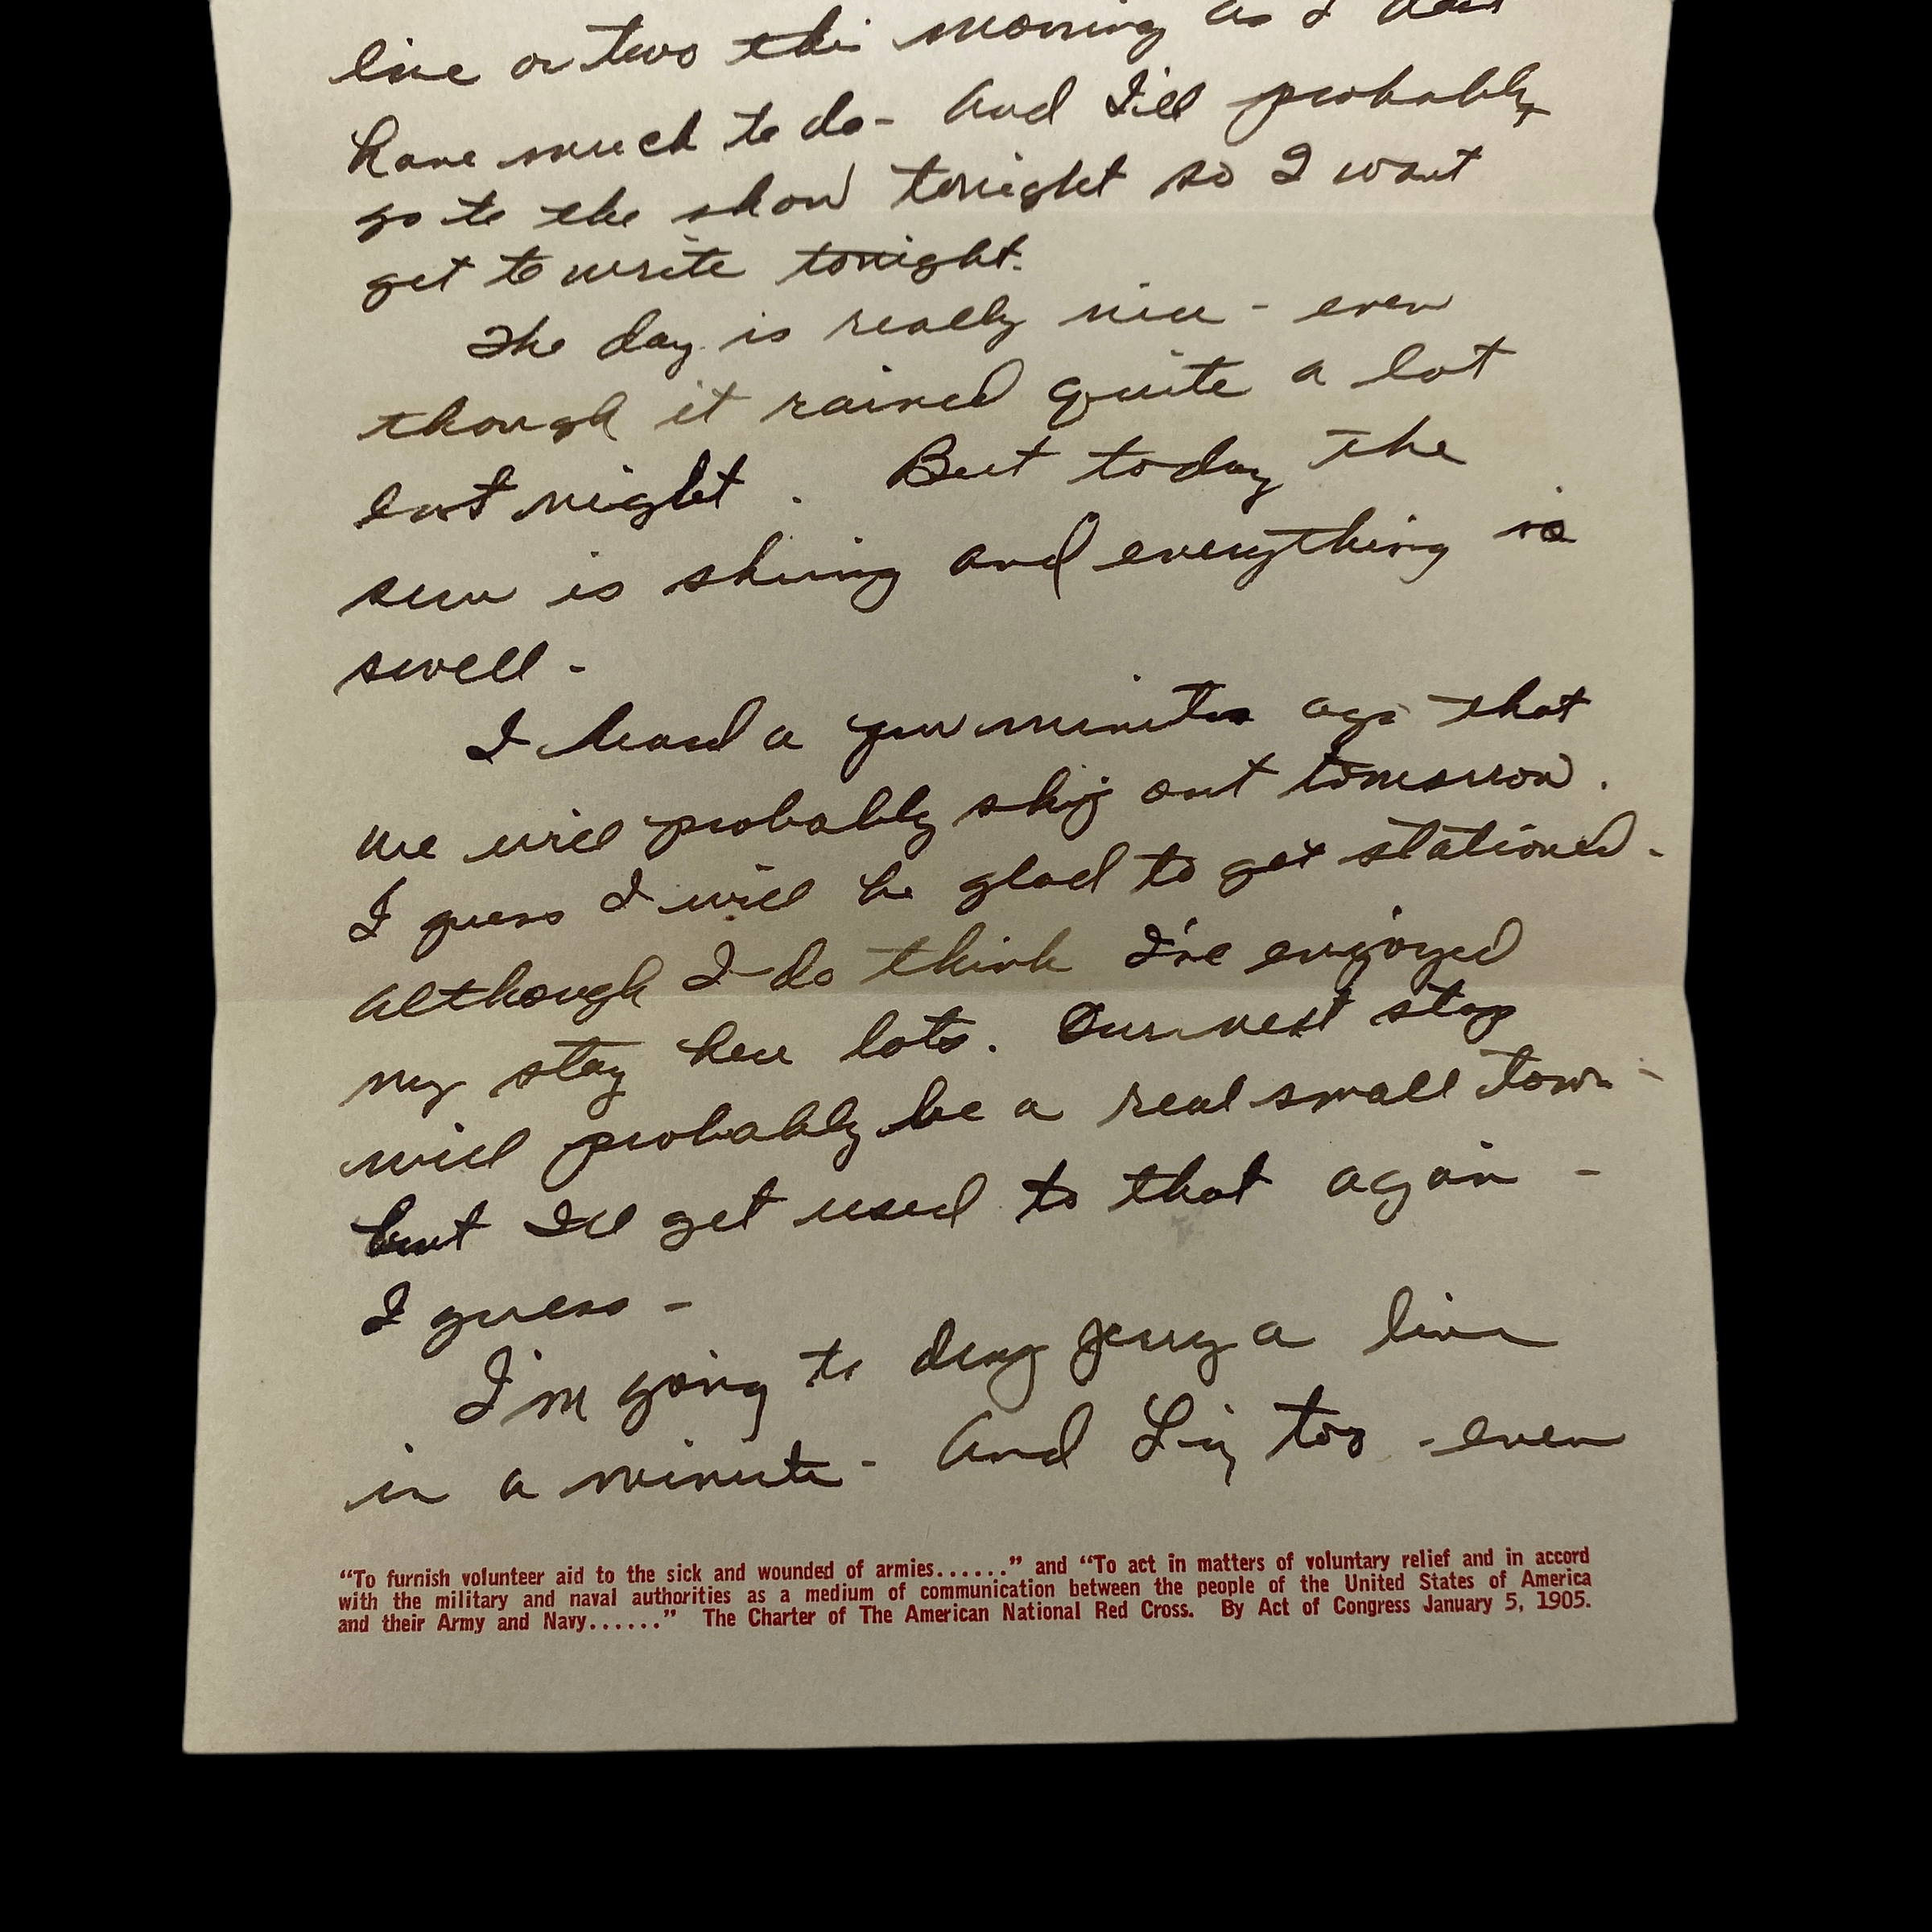 line or two this morning as I don't
have much to do - And I'll probably
go to the show tonight so I wont
get to write tonight.
The day is really nice - even
though it rained quite a lot
last night. But today the
sun is shining and everything is
swell -
I heard a few minutes ago that
we will probably ship out tomorrow.
I guess I will be glad to get stationed -
although I do think I've enjoyed
my stay here lots. Our next stop
will probably be a real small town -
but I'll get used to that again -
I guess -
I'm going to drop Jerry a line
in a minute - And Liz too - even
"To furnish volunteer aid to the sick and wounded of armies......" and "To act in matters of voluntary relief and in accord
with the military and naval authorities as a medium of communication between the people of the United States of America
and their Army and Navy......" The Charter of The American National Red Cross. By Act of Congress January 5, 1905.